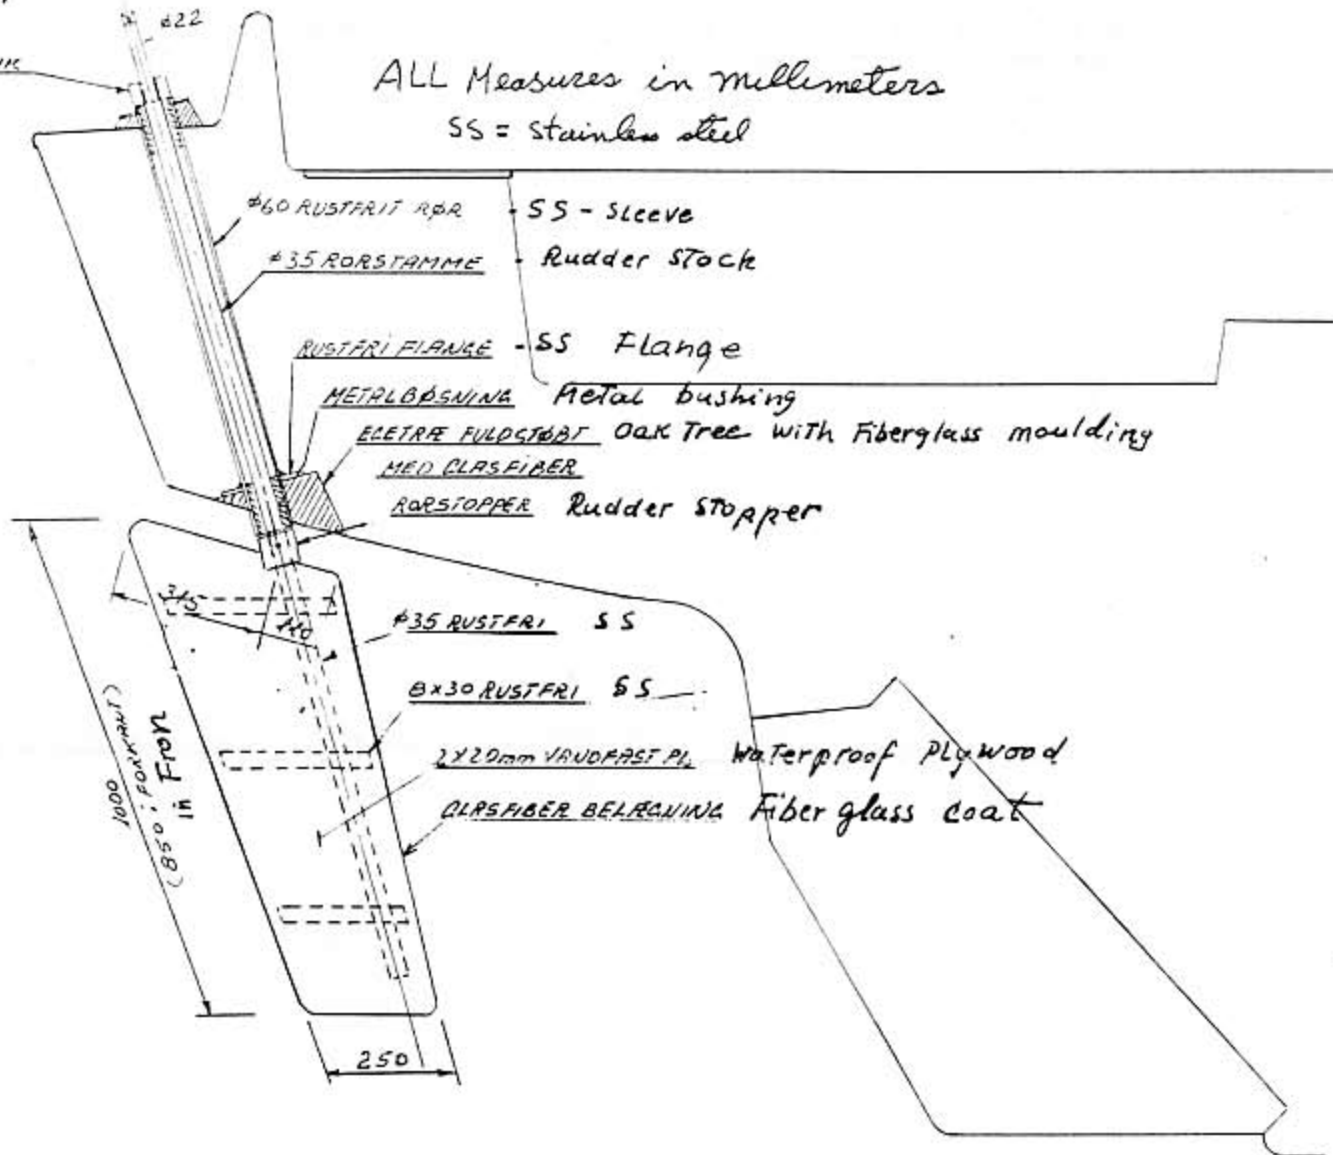 ø22
ALL Measures in millimeters
SS = stainless steel
ø60 RUSTFRIT RØR - SS - Sleeve
ø35 RORSTAMME - Rudder Stock
RUSTFRI FLANGE - SS Flange
METALBØSNING Metal bushing
EGETRÆ FULDSTØBT Oak Tree with Fiberglass moulding
MED GLASFIBER
RORSTOPPER Rudder Stopper
315
110
ø35 RUSTFRI SS
8x30 RUSTFRI SS
2x20mm VANDFAST PL. Waterproof Plywood
GLASFIBER BELÆGNING Fiber glass coat
1000
(850 i FORKANT)
" Fron
250